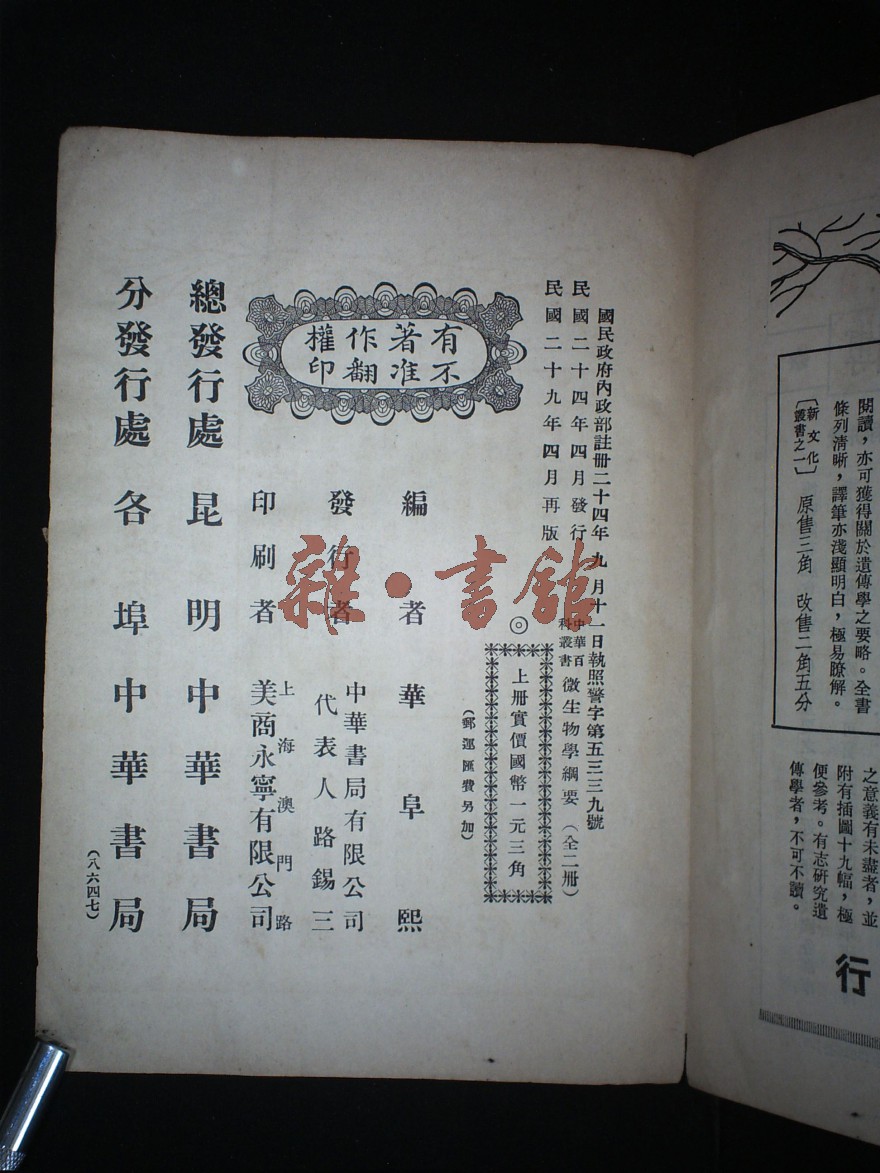 國民政府內政部註册二十四年九月十一日執照警字第五三三九號
民國二十四年四月發行
民國二十九年四月再版
中華百科叢書 微生物學綱要（全二册）
◎上册實價國幣一元三角
（郵運匯費另加）
有著作權
不准翻印
編者 華阜熙
發行者 中華書局有限公司
代表人路錫三
印刷者 上海澳門路
美商永寧有限公司
總發行處 昆明中華書局
分發行處 各埠中華書局
（八六四七）
雜·書館
閱讀，亦可獲得關於遺傳學之要略。全書
條列清晰，譯筆亦淺顯明白，極易瞭解。
〔新文化叢書之一〕 原售三角 改售二角五分
之意義有未盡者，並
附有插圖十九幅，極
便參考。有志研究遺
傳學者，不可不讀。
行